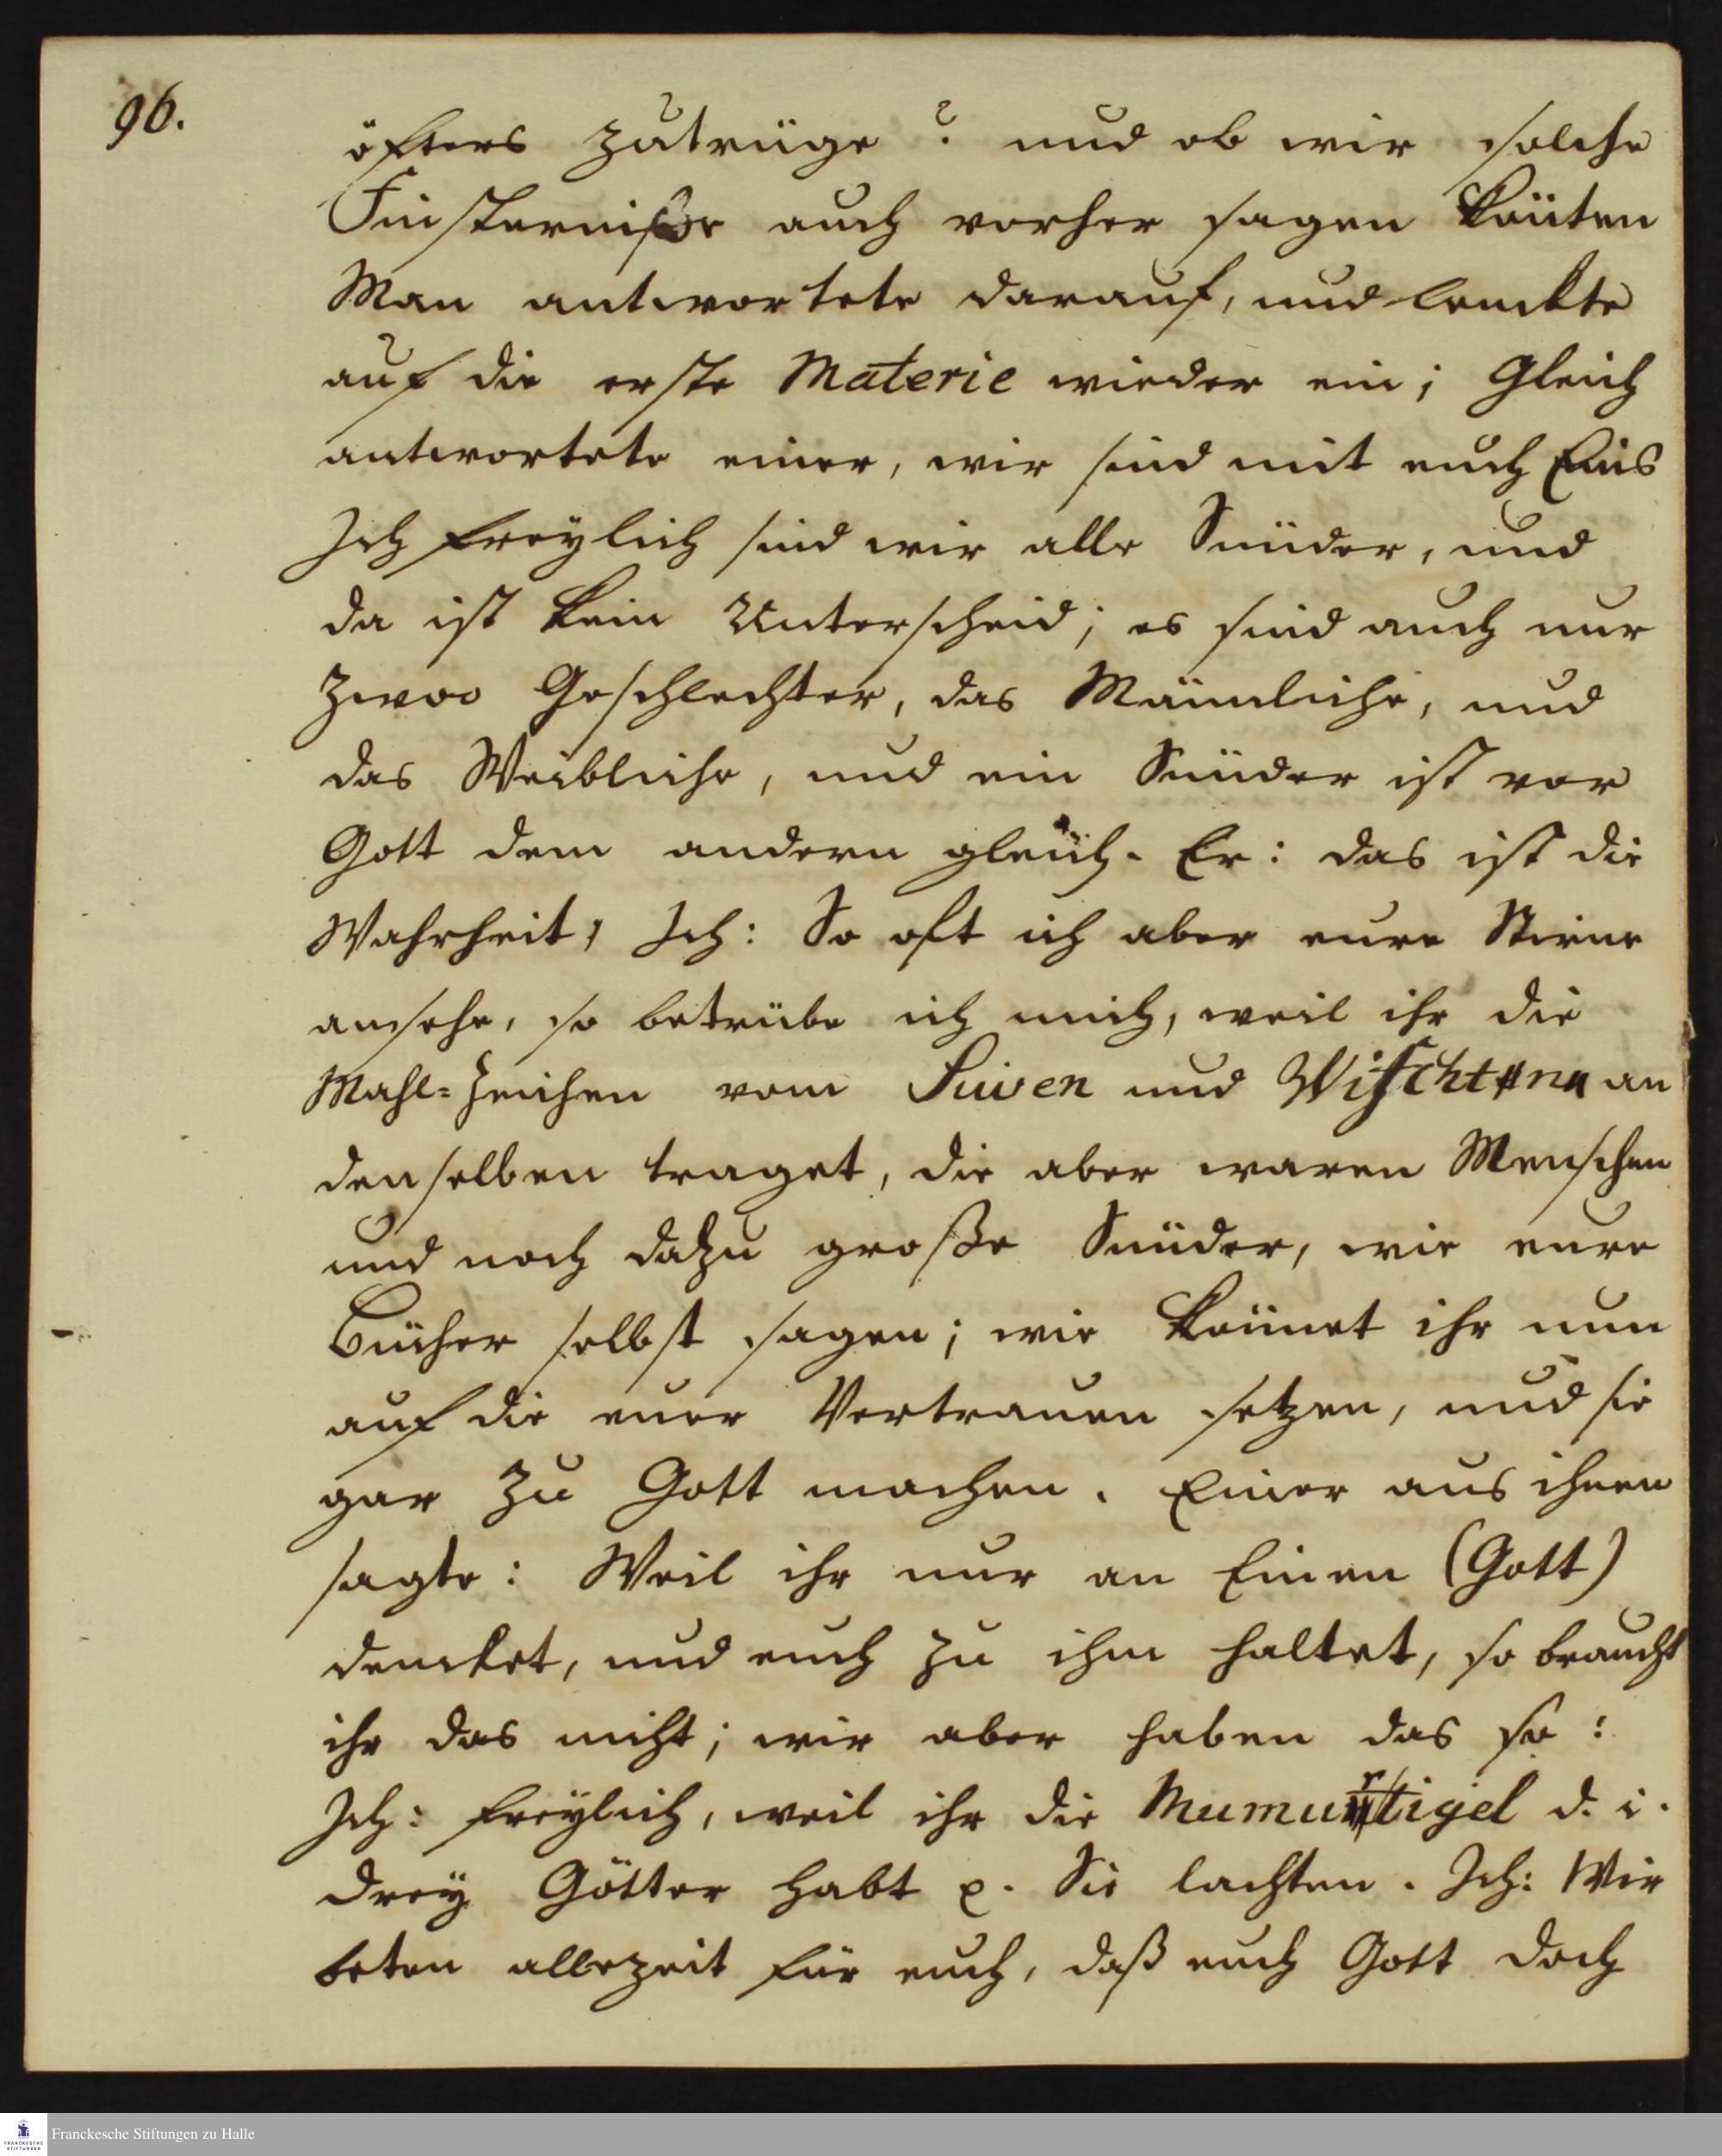 96.
öfters zutrüge? und ob wir solche
Finsternißer auch vorher sagen könten
Man antwortete darauf, und lenckte
auf die erste Materie wieder ein; Gleich
antwortete einer, wir sind mit euch Eins
Ich freylich sind wir alle Sünder, und
da ist kein Unterscheid; es sind auch nur
zwoo Geschlechter, das Männliche, und
das Weibliche, und ein Sünder ist vor
Gott dem andern gleich. Er: das ist die
Wahrheit; Ich: So oft ich aber eure Stirne
ansehe, so betrübe ich mich, weil ihr die
Mahl-Zeichen vom Siwen und Wischtnu an
denselben traget, die aber waren Menschen
und noch dazu große Sünder, wie eure
Bücher selbst sagen; wie könnet ihr nun
auf die euer Vertrauen setzen, und sie
gar zu Gott machen. Einer aus ihnen
sagte: Weil ihr nur an Einen (Gott)
dencket, und euch zu ihm haltet, so braucht
ihr das nicht; wir aber haben das so:
Ich: freylich, weil ihr die Mumurtigel d. i.
drey Götter habt p. Sie lachten. Ich: Wir
beten allezeit für euch, daß euch Gott doch
Franckesche Stiftungen zu Halle